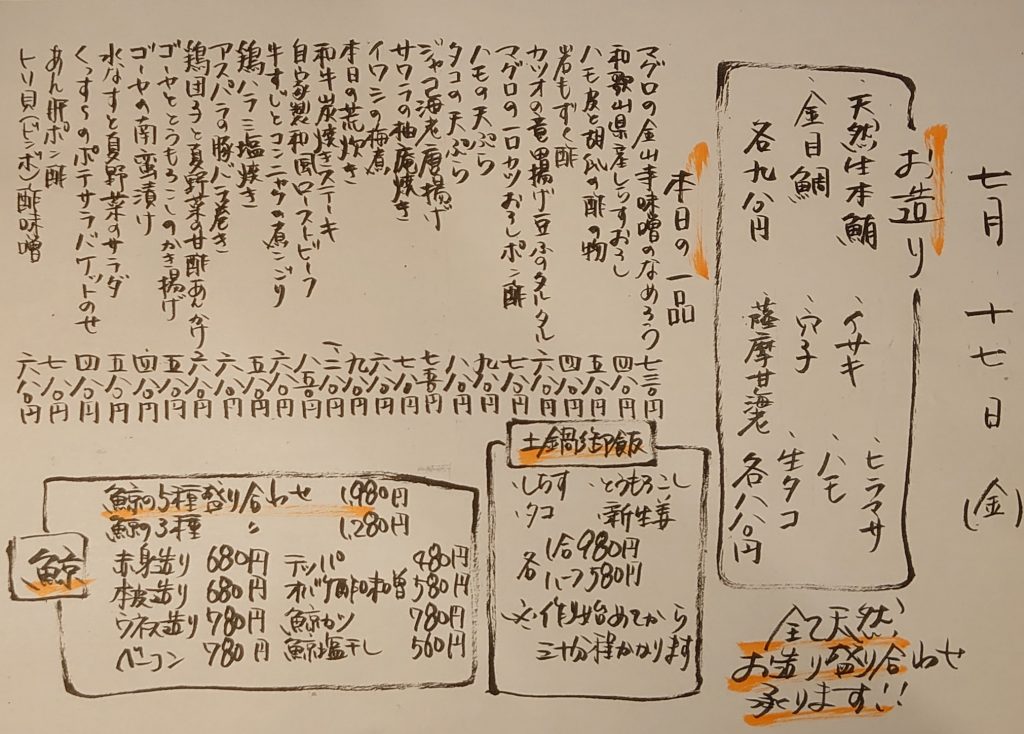 七月十七日(金)
お造り
・天然生本鮪 ・イサキ ・ヒラマサ
・金目鯛 ・穴子 ・ハモ
各九八〇円 ・薩摩甘海老 ・生タコ
各八八〇円
全て天然
お造り盛り合わせ
承ります!!
本日の一品
マグロの金山寺味噌のなめろう 七三〇円
和歌山県産しらすおろし 四八〇円
ハモ皮と胡瓜の酢の物 五八〇円
岩もずく酢 四八〇円
カツオの竜田揚げ豆ふのタルタル 六八〇円
マグロの一口カツおろしポン酢 七八〇円
ハモの天ぷら 九八〇円
タコの天ぷら 八八〇円
ジャコ海老唐揚げ 七五〇円
サワラの柚庵焼き 七八〇円
イワシの梅煮 六八〇円
本日の荒炊き 九八〇円
和牛炭焼きステーキ 一二八〇円
自家製和風ローストビーフ 八五〇円
牛すじとコンニャクの煮こごり 六八〇円
鶏ハラミ塩焼き 五八〇円
アスパラの豚バラ巻き 六八〇円
鶏団子と夏野菜の甘酢あんかけ 六八〇円
ゴーヤととうもろこしのかき揚げ 五八〇円
ゴーヤの南蛮漬け 四八〇円
水なすと夏野菜のサラダ 五八〇円
のポテサラバケットのせ 四八〇円
あん肝ポン酢 七八〇円
トリ貝(ビンボン)酢味噌 六八〇円
土鍋御飯
・しらす ・とうもろこし
・タコ ・新生姜
各 1合980円
ハーフ580円
※作り始めてから
三十分程かかります
鯨
鯨の5種盛り合わせ 1,980円
鯨の3種 〃 1,280円
赤身造り 680円 テッパ 480円
本皮造り 680円 オバケ酢味噌 580円
ウネス造り 780円 鯨カツ 780円
ベーコン 780円 鯨塩干し 560円